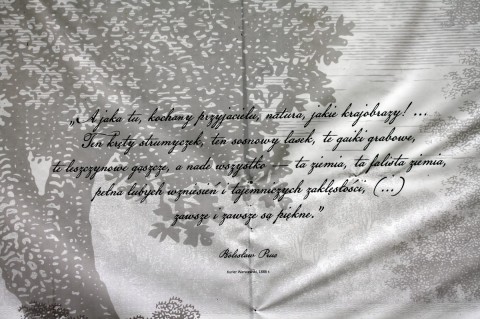 „A jaka tu, kochany przyjacielu, natura, jakie krajobrazy! ...
Ten kręty strumyczek, ten sosnowy lasek, te gaiki grabowe,
te leszczynowe gąszcze, a nade wszystko — ta ziemia, ta falista ziemia,
pełna lubych wzniesień i tajemniczych zaklęsłości, (...)
zawsze i zawsze są piękne."
Bolesław Prus
Kurier Warszawski, 1886 r.